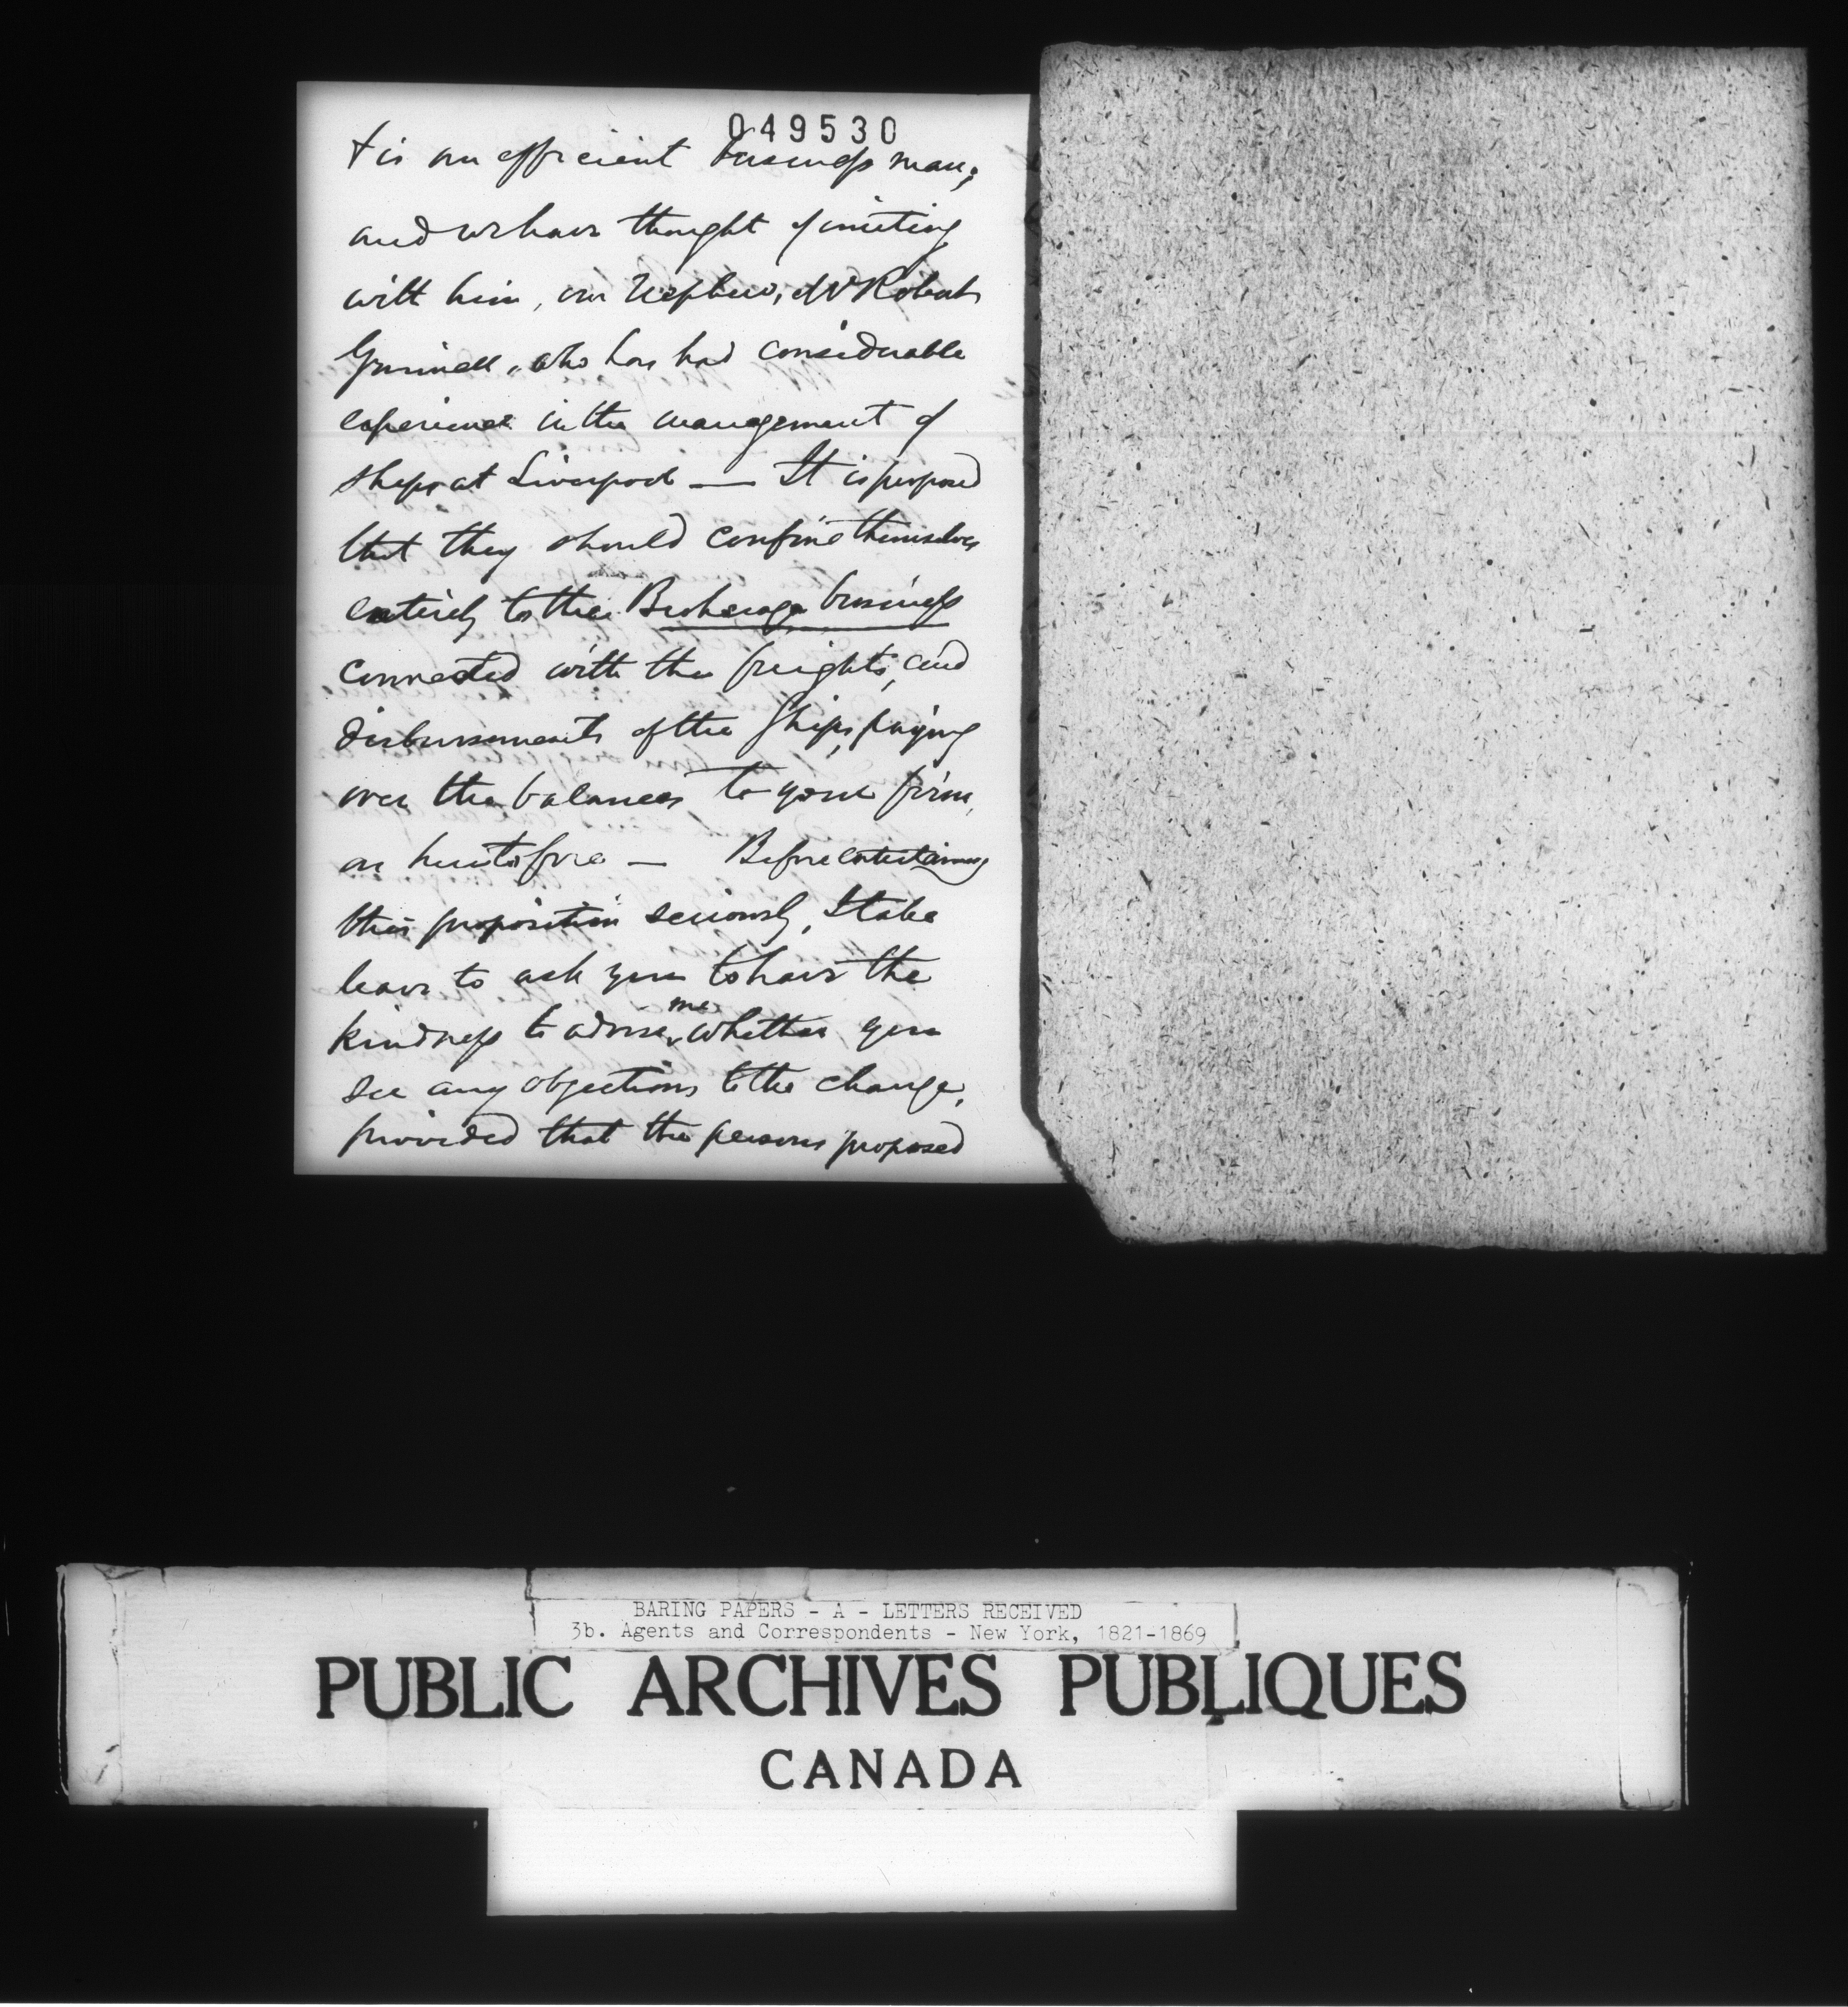 049530
& is an efficient business man;
and we have thought of uniting
with him, our Nephew, Mr Robert
Grinnell, who has had considerable
experience in the management of
ships at Liverpool — It is proposed
that they should confine themselves
entirely to the Brokerage business
connected with the freights, and
disbursements of the Ships, paying
over the balances to your firm,
as heretofore — Before entertaining
this proposition seriously, I take
leave to ask you to have the
kindness to advise me whether you
see any objections to the change,
provided that the persons proposed
BARING PAPERS - A - LETTERS RECEIVED
3b. Agents and Correspondents - New York, 1821-1869
PUBLIC ARCHIVES PUBLIQUES
CANADA